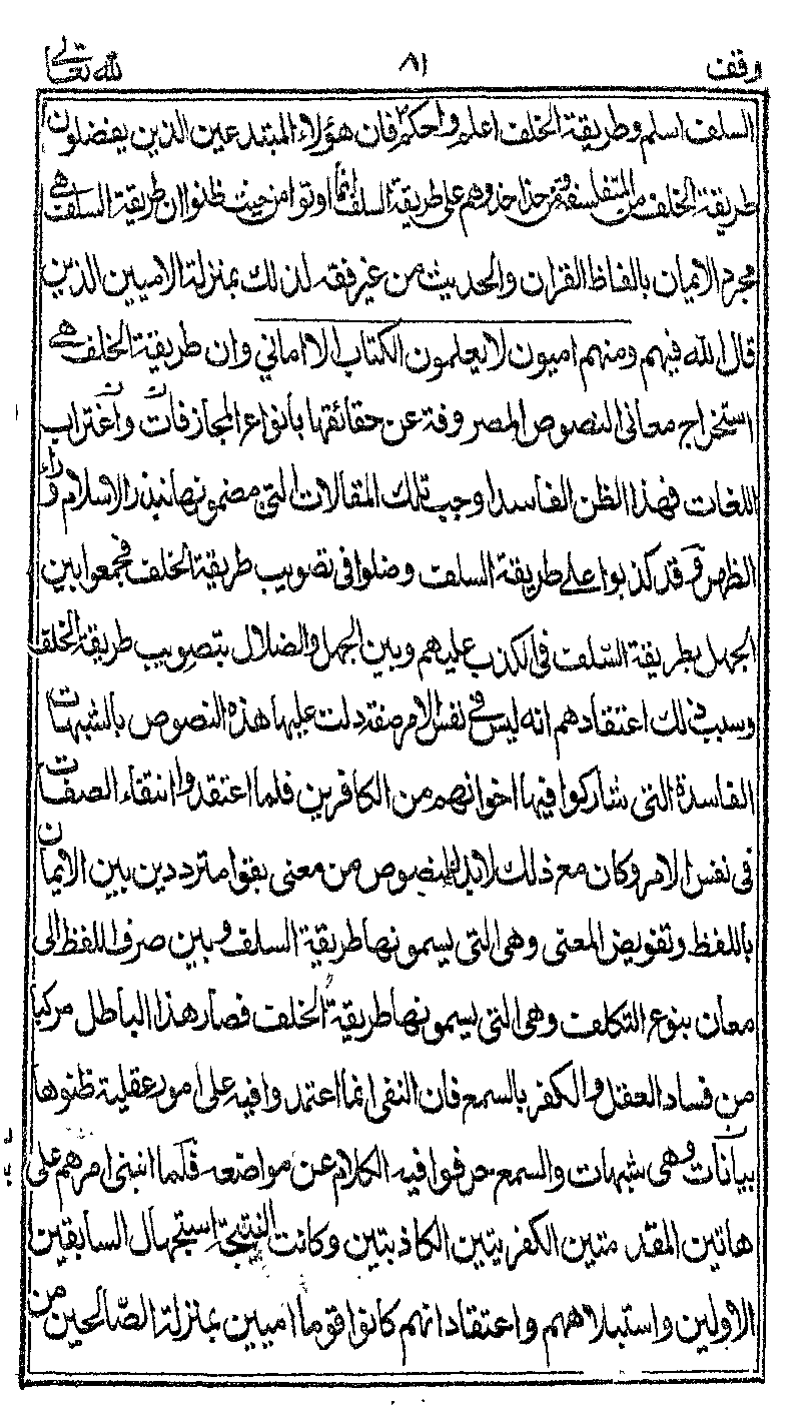 وقف ٨١ لله تعالى
السلف اسلم وطريقة الخلف اعلم واحكم فان هؤلاء المبتدعين الذين يفضلون
طريقة الخلف من المتفلسفة ومن حذا حذوهم على طريقة السلف انما اوتوا من حيث ظنوا ان طريقة السلف هى
مجرد الايمان بالفاظ القران والحديث من غير فقه لذلك بمنزلة الاميين الذين
قال الله فيهم ومنهم اميون لا يعلمون الكتاب الا امانى وان طريقة الخلف هى
استخراج معانى النصوص المصروفة عن حقائقها بانواع المجازفات واغتراب
اللغات فهذا الظن الفاسد اوجب تلك المقالات التى مضمونها نبذ الاسلام وراء
الظهر وقد كذبوا على طريقة السلف وضلوا فى تصويب طريقة الخلف فجمعوا بين
الجهل بطريقة السلف فى الكذب عليهم وبين الجهل والضلال بتصويب طريقة الخلف
وسبب ذلك اعتقادهم انه ليس فى نفس الامر صفة دلت عليها هذه النصوص بالشبهات
الفاسدة التى شاركوا فيها اخوانهم من الكافرين فلما اعتقدوا انتفاء الصفات
فى نفس الامر وكان مع ذلك لابد للنصوص من معنى بقوا مترددين بين الايمان
باللفظ وتفويض المعنى وهى التى يسمونها طريقة السلف وبين صرف اللفظ الى
معان بنوع التكلف وهى التى يسمونها طريقة الخلف فصار هذا الباطل مركبا
من فساد العقل والكفر بالسمع فان النفى انما اعتمدوا فيه على امور عقلية ظنوها
بيانات وهى شبهات والسمع حرفوا فيه الكلام عن مواضعه فلما انبنى امرهم على
هاتين المقدمتين الكفريتين الكاذبتين وكانت النتيجة استجهال السابقين
الاولين واستبلاههم واعتقاد انهم كانوا قوما اميين بمنزلة الصّالحين من